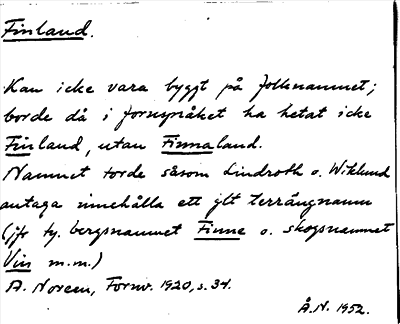 Finland.
Kan icke vara byggt på folknamnet;
borde då i fornspråket ha hetat icke
Finland, utan Finnaland.
Namnet torde såsom Lindroth o. Wiklund
antaga innehålla ett glt terrängnamn
(jfr ty. bergsnamnet Finne o. skogsnamnet
Vin m.m.)
A. Noreen, Fornv. 1920, s. 34.
Å.N. 1952.